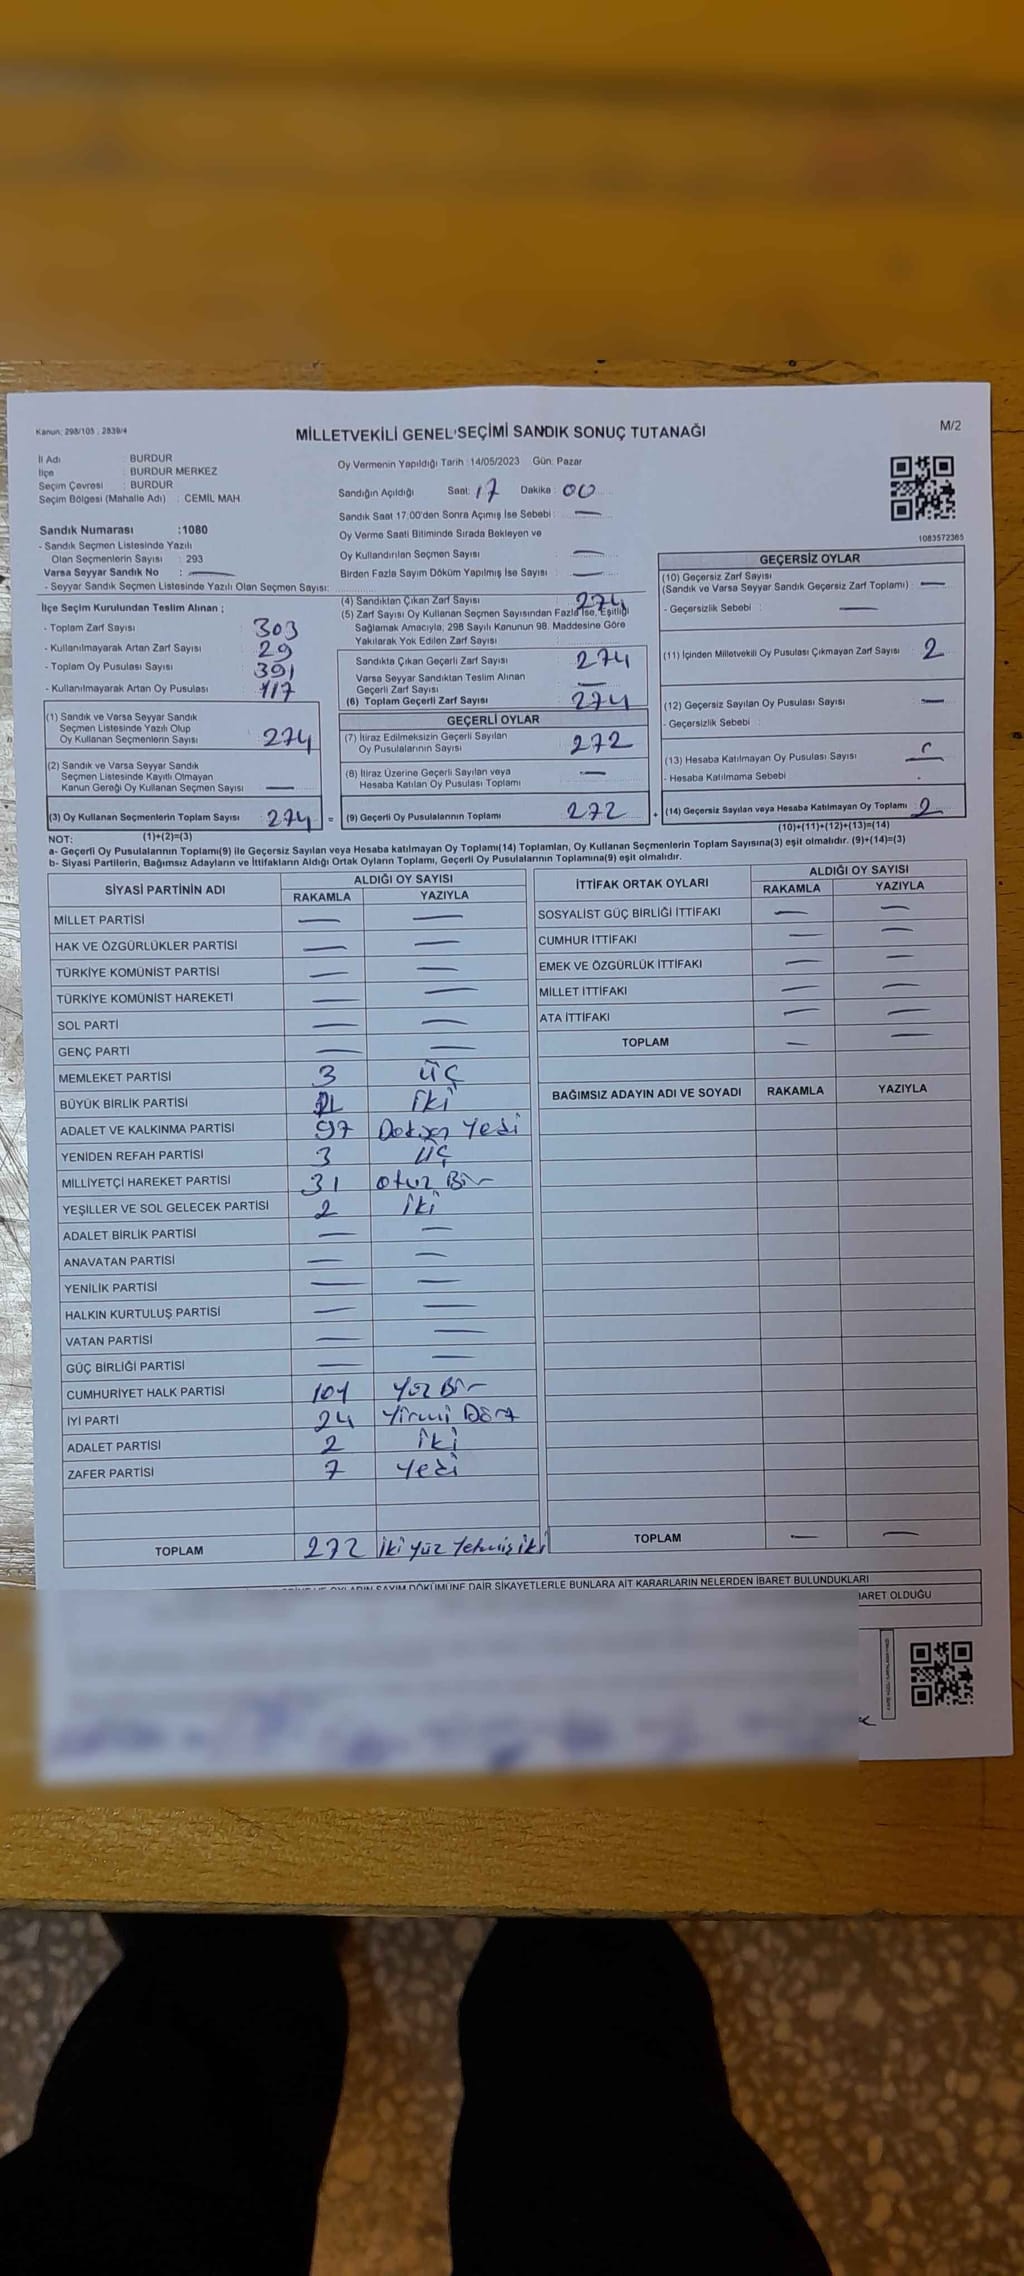 Kanun: 298/105 ; 2839/4
MİLLETVEKİLİ GENEL SEÇİMİ SANDIK SONUÇ TUTANAĞI
M/2
İl Adı : BURDUR
İlçe : BURDUR MERKEZ
Seçim Çevresi : BURDUR
Seçim Bölgesi (Mahalle Adı) : CEMİL MAH.
Sandık Numarası :1080
- Sandık Seçmen Listesinde Yazılı
Olan Seçmenlerin Sayısı : 293
Varsa Seyyar Sandık No : —
- Seyyar Sandık Seçmen Listesinde Yazılı Olan Seçmen Sayısı:
Oy Vermenin Yapıldığı Tarih :14/05/2023 Gün: Pazar
Sandığın Açıldığı Saat: 17 Dakika : 00
Sandık Saat 17:00'den Sonra Açımış İse Sebebi : —
Oy Verme Saati Bitiminde Sırada Bekleyen ve
Oy Kullandırılan Seçmen Sayısı : —
Birden Fazla Sayım Döküm Yapılmış İse Sayısı : —
1083572365
İlçe Seçim Kurulundan Teslim Alınan ;
- Toplam Zarf Sayısı : 303
- Kullanılmayarak Artan Zarf Sayısı : 29
- Toplam Oy Pusulası Sayısı : 391
- Kullanılmayarak Artan Oy Pusulası : 117
(1) Sandık ve Varsa Seyyar Sandık
Seçmen Listesinde Yazılı Olup
Oy Kullanan Seçmenlerin Sayısı : 274
(2) Sandık ve Varsa Seyyar Sandık
Seçmen Listesinde Kayıtlı Olmayan
Kanun Gereği Oy Kullanan Seçmen Sayısı : —
(3) Oy Kullanan Seçmenlerin Toplam Sayısı : 274 =
(4) Sandıktan Çıkan Zarf Sayısı : 274
(5) Zarf Sayısı Oy Kullanan Seçmen Sayısından Fazla İse, Eşitliği
Sağlamak Amacıyla, 298 Sayılı Kanunun 98. Maddesine Göre
Yakılarak Yok Edilen Zarf Sayısı :
Sandıkta Çıkan Geçerli Zarf Sayısı : 274
Varsa Seyyar Sandıktan Teslim Alınan
Geçerli Zarf Sayısı : —
(6) Toplam Geçerli Zarf Sayısı : 274
GEÇERLİ OYLAR
(7) İtiraz Edilmeksizin Geçerli Sayılan
Oy Pusulalarının Sayısı : 272
(8) İtiraz Üzerine Geçerli Sayılan veya
Hesaba Katılan Oy Pusulası Toplamı : —
(9) Geçerli Oy Pusulalarının Toplamı : 272 +
GEÇERSİZ OYLAR
(10) Geçersiz Zarf Sayısı
(Sandık ve Varsa Seyyar Sandık Geçersiz Zarf Toplamı) : —
- Geçersizlik Sebebi : —
(11) İçinden Milletvekili Oy Pusulası Çıkmayan Zarf Sayısı : 2
(12) Geçersiz Sayılan Oy Pusulası Sayısı : —
- Geçersizlik Sebebi :
(13) Hesaba Katılmayan Oy Pusulası Sayısı :
- Hesaba Katılmama Sebebi :
(14) Geçersiz Sayılan veya Hesaba Katılmayan Oy Toplamı : 2
NOT: (1)+(2)=(3) (10)+(11)+(12)+(13)=(14)
a- Geçerli Oy Pusulalarının Toplamı(9) ile Geçersiz Sayılan veya Hesaba katılmayan Oy Toplamı(14) Toplamları, Oy Kullanan Seçmenlerin Toplam Sayısına(3) eşit olmalıdır. (9)+(14)=(3)
b- Siyasi Partilerin, Bağımsız Adayların ve İttifakların Aldığı Ortak Oyların Toplamı, Geçerli Oy Pusulalarının Toplamına(9) eşit olmalıdır.
SİYASİ PARTİNİN ADI ALDIĞI OY SAYISI
RAKAMLA YAZIYLA
MİLLET PARTİSİ — —
HAK VE ÖZGÜRLÜKLER PARTİSİ — —
TÜRKİYE KOMÜNİST PARTİSİ — —
TÜRKİYE KOMÜNİST HAREKETİ — —
SOL PARTİ — —
GENÇ PARTİ — —
MEMLEKET PARTİSİ 3 ÜÇ
BÜYÜK BİRLİK PARTİSİ İki
ADALET VE KALKINMA PARTİSİ 97 Yedi
YENİDEN REFAH PARTİSİ 3 ÜÇ
MİLLİYETÇİ HAREKET PARTİSİ 31 otuz Bir
YEŞİLLER VE SOL GELECEK PARTİSİ 2 İki
ADALET BİRLİK PARTİSİ — —
ANAVATAN PARTİSİ — —
YENİLİK PARTİSİ — —
HALKIN KURTULUŞ PARTİSİ — —
VATAN PARTİSİ — —
GÜÇ BİRLİĞİ PARTİSİ — —
CUMHURİYET HALK PARTİSİ 101 Yüz Bir
İYİ PARTİ 24 Yirmi Dört
ADALET PARTİSİ 2 İki
ZAFER PARTİSİ 7 Yedi
TOPLAM 272 İki Yüz Yetmiş iki
İTTİFAK ORTAK OYLARI ALDIĞI OY SAYISI
RAKAMLA YAZIYLA
SOSYALİST GÜÇ BİRLİĞİ İTTİFAKI — —
CUMHUR İTTİFAKI — —
EMEK VE ÖZGÜRLÜK İTTİFAKI — —
MİLLET İTTİFAKI — —
ATA İTTİFAKI — —
TOPLAM — —
BAĞIMSIZ ADAYIN ADI VE SOYADI RAKAMLA YAZIYLA
TOPLAM — —
OYLARIN SAYIM DÖKÜMÜNE DAİR ŞİKAYETLERLE BUNLARA AİT KARARLARIN NELERDEN İBARET BULUNDUKLARI
İBARET OLDUĞU